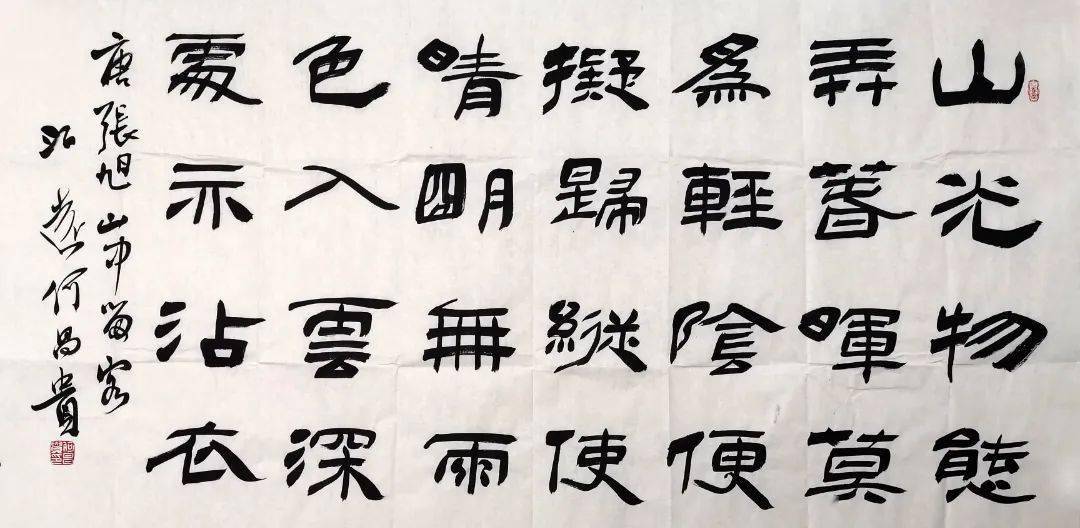 山光物態
弄春暉莫
爲輕陰便
擬歸縱使
晴明無雨
色入雲深
處亦沾衣
唐張旭山中留客
何昌貴